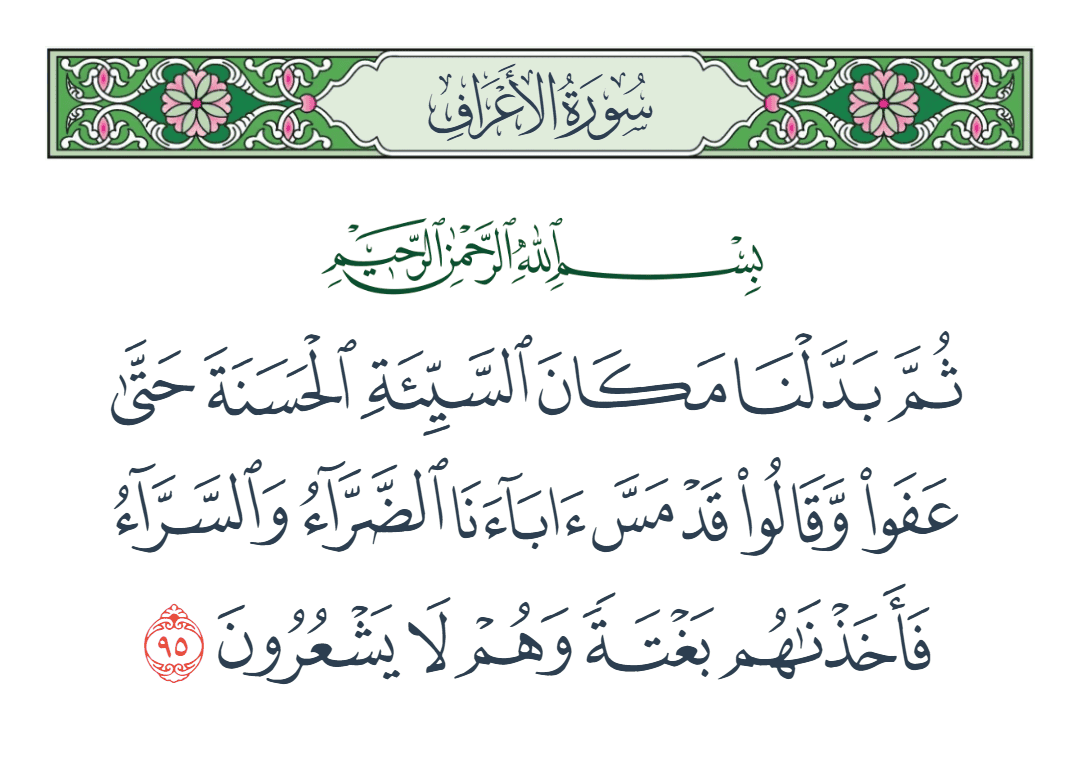 سُورَةُ الأَعْرَافِ
بِسْمِ ٱللَّهِ ٱلرَّحْمَٰنِ ٱلرَّحِيمِ
ثُمَّ بَدَّلْنَا مَكَانَ ٱلسَّيِّئَةِ ٱلْحَسَنَةَ حَتَّىٰ
عَفَوا۟ وَّقَالُوا۟ قَدْ مَسَّ ءَابَآءَنَا ٱلضَّرَّآءُ وَٱلسَّرَّآءُ
فَأَخَذْنَٰهُم بَغْتَةً وَهُمْ لَا يَشْعُرُونَ ٩٥